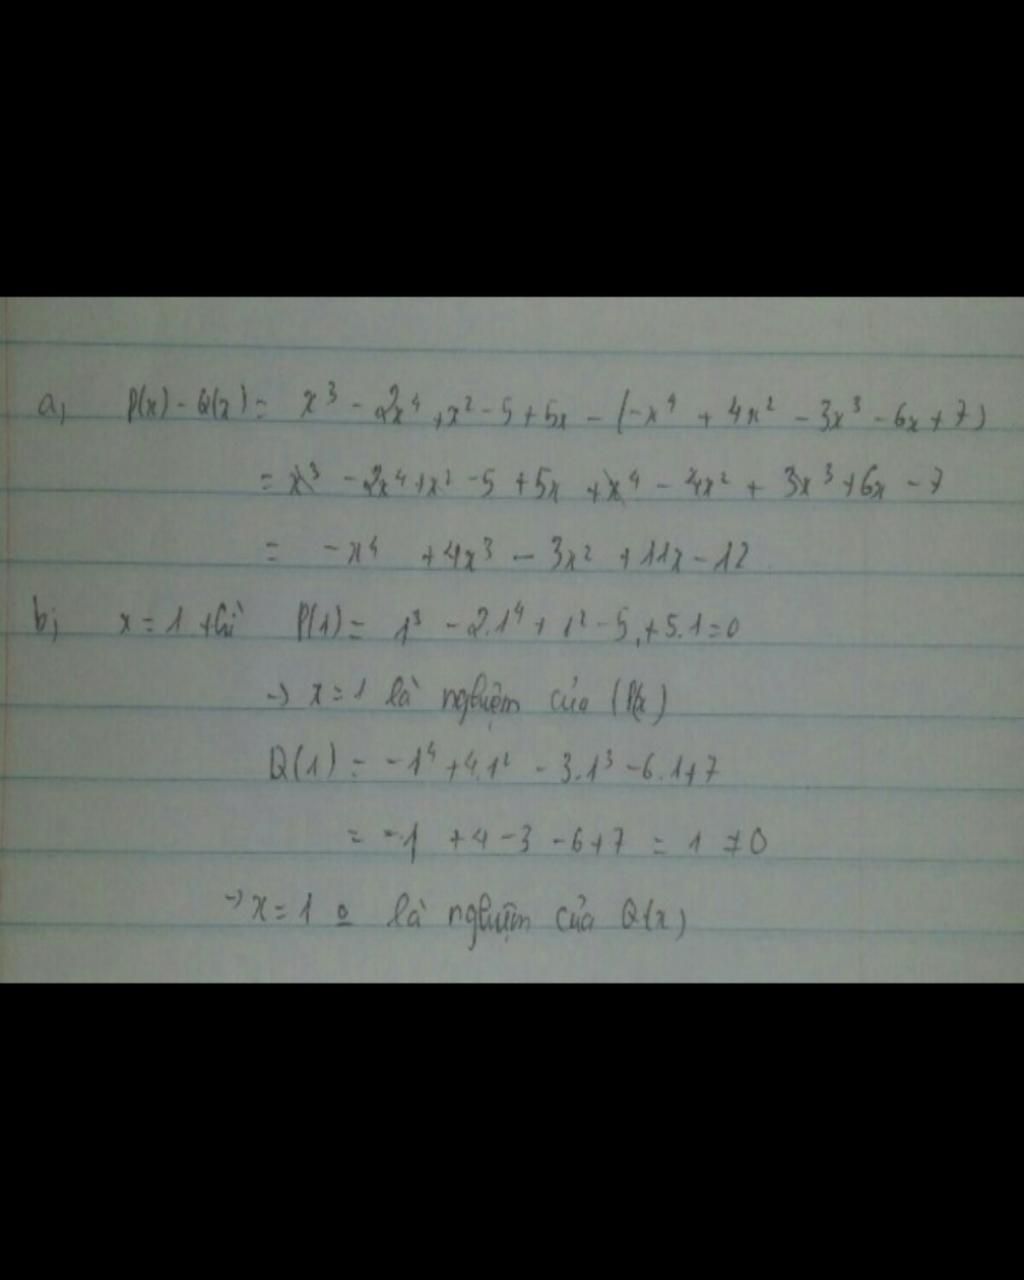 a, P(x) - Q(x) = x³ - 2x⁴ + x² - 5 + 5x - (-x⁴ + 4x² - 3x³ - 6x + 7)
= x³ - 2x⁴ + x² - 5 + 5x + x⁴ - 4x² + 3x³ + 6x - 7
= -x⁴ + 4x³ - 3x² + 11x - 12
b, x = 1 thì P(1) = 1³ - 2.1⁴ + 1² - 5 + 5.1 = 0
→ x = 1 là nghiệm của (P(x)
Q(1) = -1⁴ + 4.1² - 3.1³ - 6.1 + 7
= -1 + 4 - 3 - 6 + 7 = 1 ≠ 0
→ x = 1 o là nghiệm của Q(x)